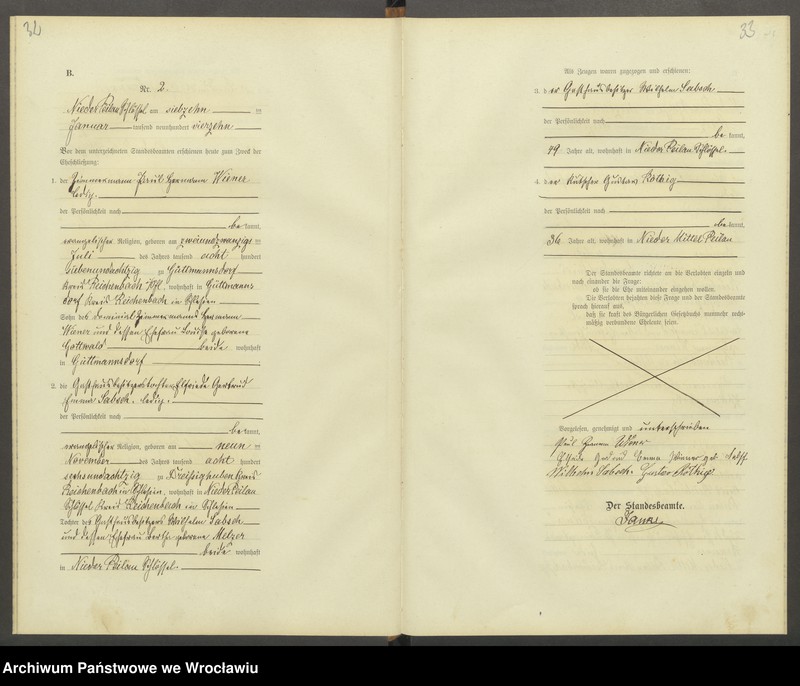 32
B.
Nr. 2.
Nieder Peilau Schlössel am siebzehn ten
Januar tausend neunhundert vierzehn
Vor dem unterzeichneten Standesbeamten erschienen heute zum Zweck der
Eheschließung:
1. der Zimmermann Paul Hermann Wiener
ledig.
der Persönlichkeit nach
be kannt,
evangelischer Religion, geboren am zweiundzwanzigs ten
Juli des Jahres tausend acht hundert
siebenundachtzig zu Güttmannsdorf
Kreis Reichenbach, wohnhaft in Güttmanns
dorf Kreis Reichenbach in Schlesien
Sohn des Dominial Zimmermanns Hermann
Wiener und dessen Ehefrau Louise geborene
Gottwald beide wohnhaft
in Güttmannsdorf
2. die Gasthausbesitzerstochter Elfriede Gertrud
Emma Sabsch. ledig.
der Persönlichkeit nach
be kannt,
evangelischer Religion, geboren am neun ten
November des Jahres tausend acht hundert
sechsundachtzig zu Dreißighuben Kreis
Reichenbach in Schlesien, wohnhaft in Nieder Peilau
Schlössel Kreis Reichenbach in Schlesien
Tochter des Gasthausbesitzers Wilhelm Sabsch
und dessen Ehefrau Bertha geborene Melzer
beide wohnhaft
in Nieder Peilau Schlössel.
33
Als Zeugen waren zugezogen und erschienen:
3. der Gasthausbesitzer Wilhelm Sabsch
der Persönlichkeit nach
be kannt,
49 Jahre alt, wohnhaft in Nieder Peilau Schlössel.
4. der Kutscher Gustav
der Persönlichkeit nach
be kannt,
36 Jahre alt, wohnhaft in Nieder Mittel Peilau
Der Standesbeamte richtete an die Verlobten einzeln und
nach einander die Frage:
ob sie die Ehe miteinander eingehen wollen.
Die Verlobten bejahten diese Frage und der Standesbeamte
sprach hierauf aus,
daß sie kraft des Bürgerlichen Gesetzbuchs nunmehr recht-
mäßig verbundene Eheleute seien.
Vorgelesen, genehmigt und unterschrieben
Paul Hermann Wiener
Elfriede Gertrud Emma Wiener geb. Sabsch
Wilhelm Sabsch. Gustav
Der Standesbeamte.
Archiwum Państwowe we Wrocławiu